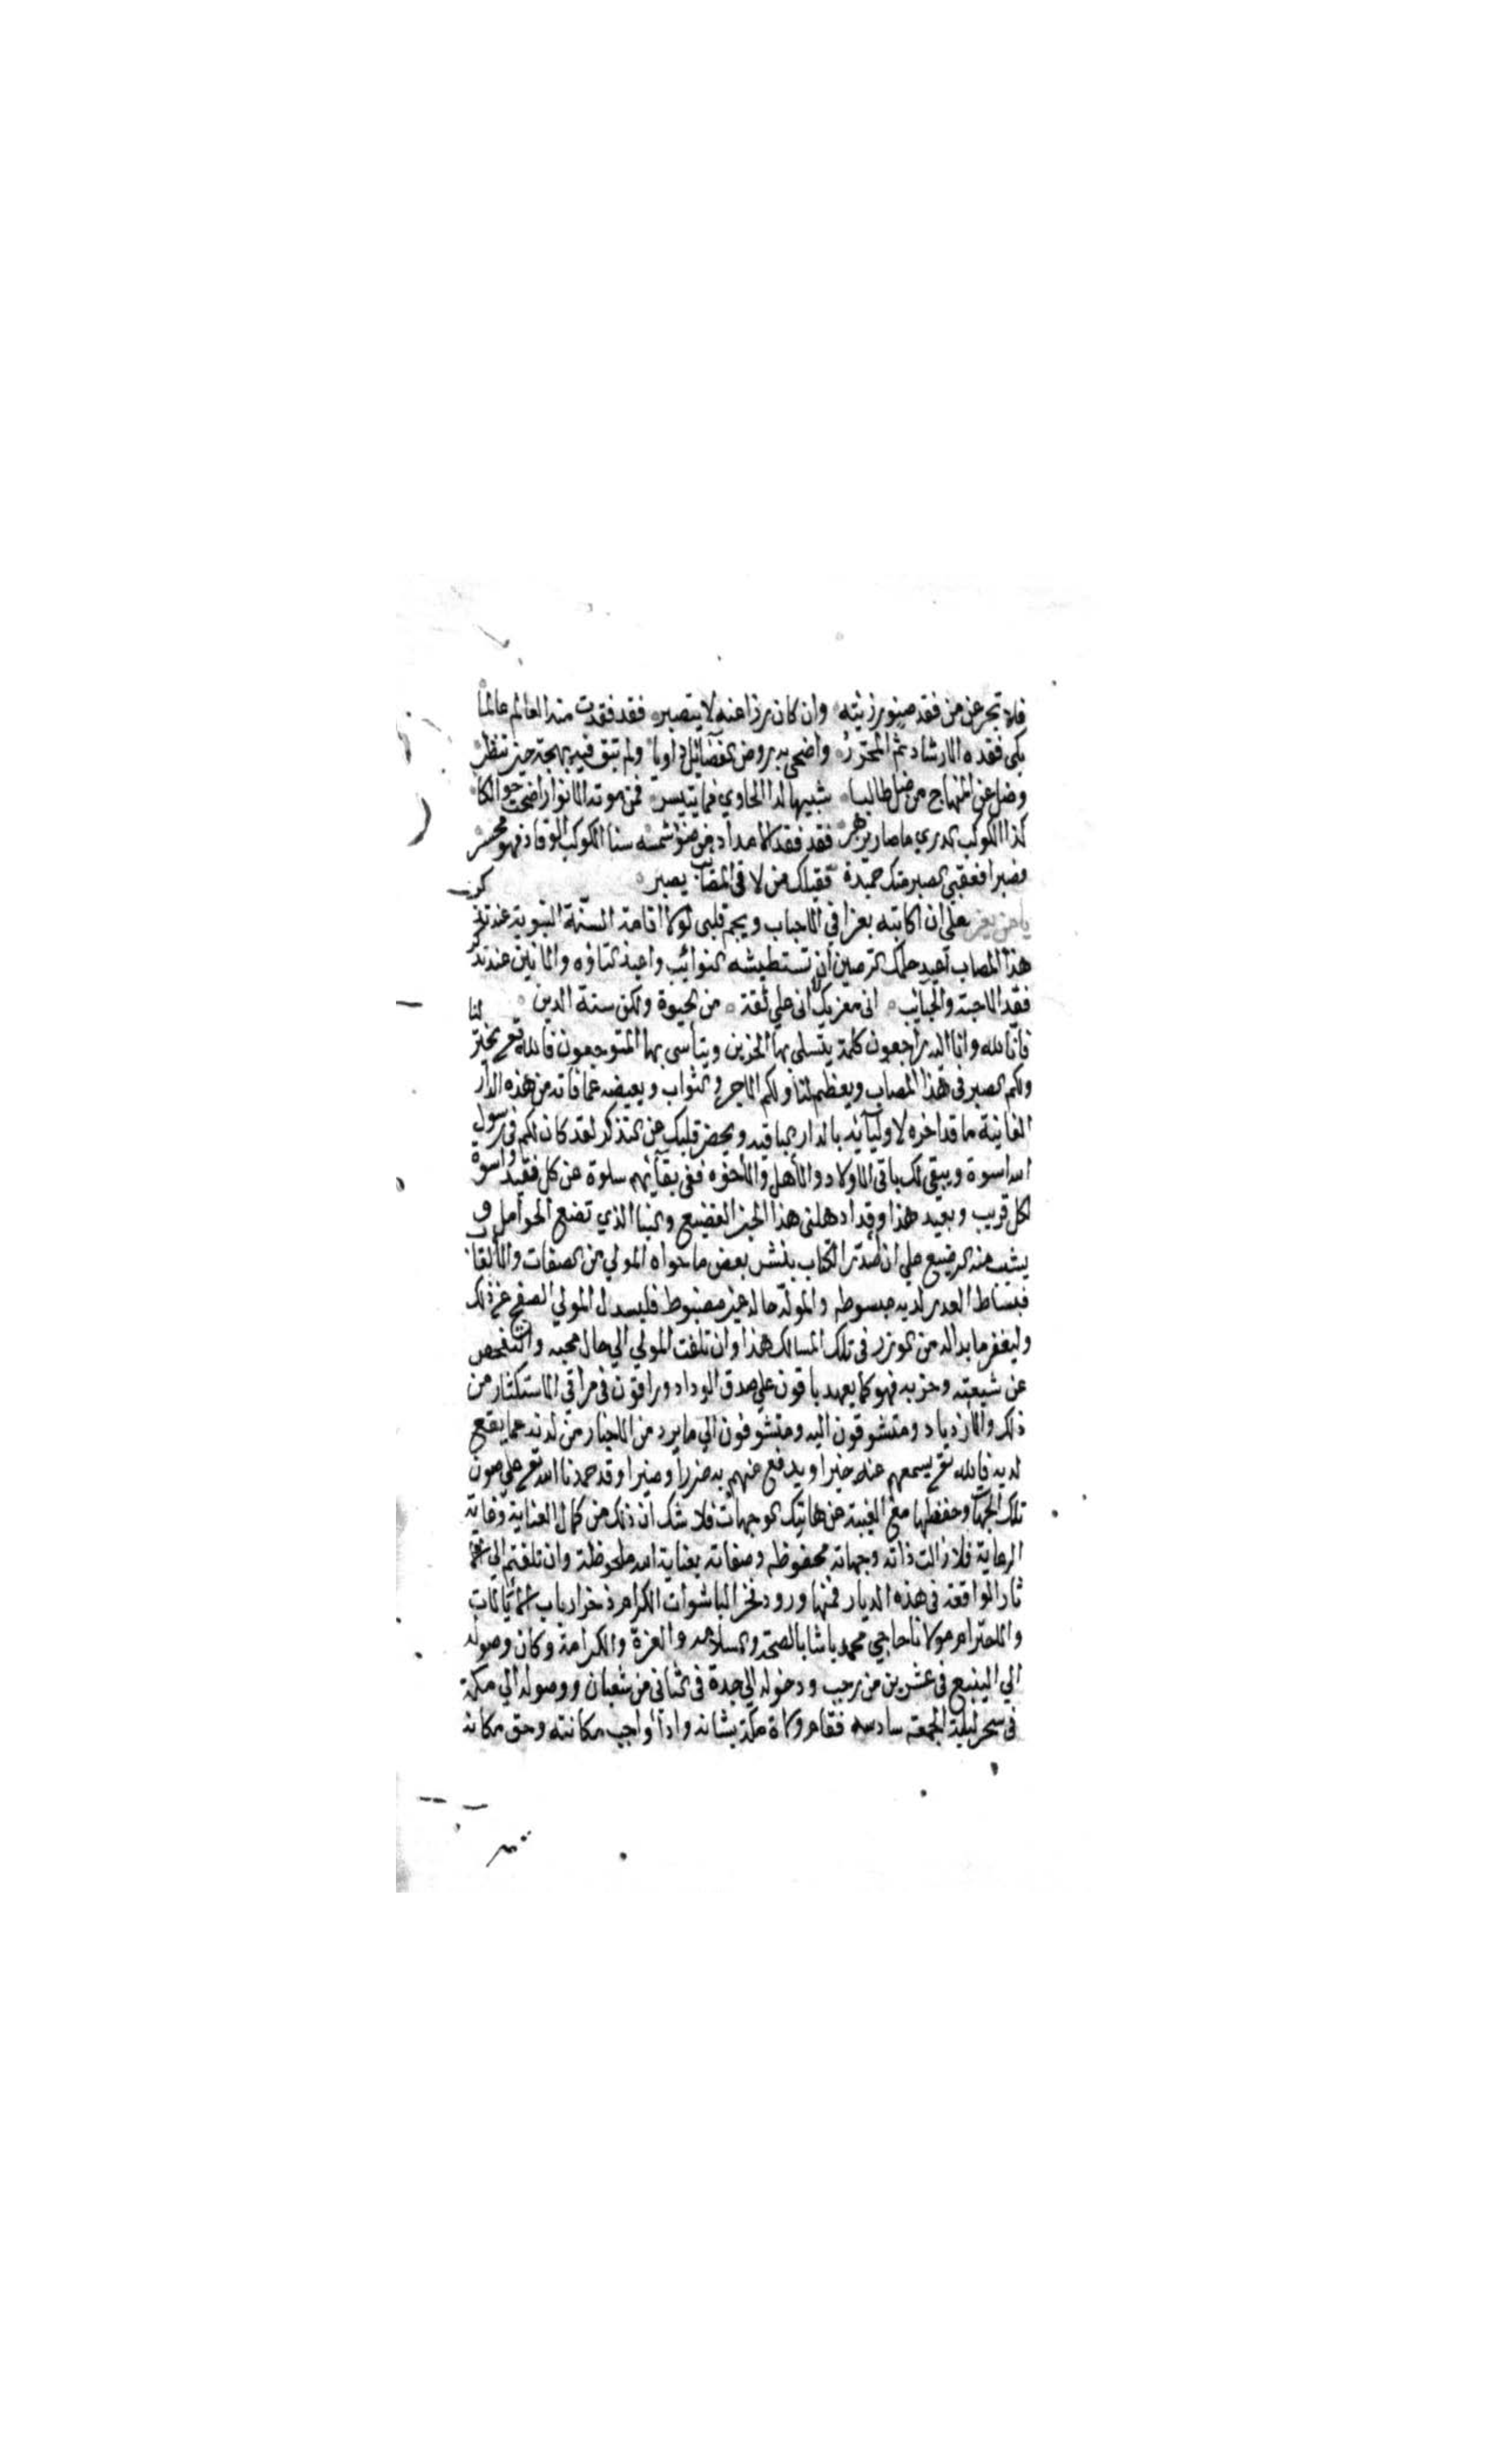 فلا تجزعن من فقد صبو رزيته وان كان رزا عنه لا يتصبر فقد فقدت منه العالم عالما
بكى فقده الارشاد ثم المحرر واضحى به روض الفضائل ذاويا ولم تبق فيه بهجة حين تنظر
وضل عن المنهاج من ضل طالبا شبيها له الحاوي فما تيسر فمن موته الانوار اضحى
كذا الكوكب الدري ما صار يزهر فقد فقد الامداد من ضوء شمسه سنا الكوكب الوقاد فهو
فصبرا فعقبى الصبر منك حميدة فقبلك من لاقى المصائب يصبر
يا من يعز على ان اكاتبه بعزا في الاحباب ويجم قلبى لولا اقامة السنة النبوية عند
هذا المصاب اعيد حلمك الرصين ان تستطيشه النوائب واعيذ التاوه والانين عند
فقد الاحبة والحبايب انى معزيك لا انى على ثقة من الحيوة ولكن سنة الدين
فانا لله وانا اليه راجعون كلمة يتسلى بها الحزين ويتأسى بها المتوجعون فالله تع يختر لنا
ولكم الصبر فى هذا المصاب ويعظم لنا ولكم الاجر والثواب ويعيضه عما فاته من هذه الدار
الفانية ما قد اخره لاوليائه بالدار الباقيه ويحضر قلبك عن التذكر لقد كان لكم فى رسول
الله اسوة ويبقى لك باقى الاولاد والاهل والاخوه ففى بقائهم سلوة عن كل فقيد واسوة
لكل قريب وبعيد هذا وقد ادهلنى هذا الخبر الفضيع والنبا الذي تضع الحوامل و
يشب منه الرضيع على ان اصدر الكتاب بنشر بعض ما حواه المولي من الصفات والالقاب
فبساط العدر لديه مبسوطه والمولّه حاله غير مضبوط فليسدل المولي الصفح عن ذلك
وليغفر ما بدا له من الوزر فى تلك المسالك هذا وان تلفت المولي الي حال محبه والتفحص
عن شيعته وحزبه فهو كما يعهد باقون على صدق الوداد وراقون فى مراقى الاستكثار من
ذلك والازدياد ومتشوقون اليه ومتشوفون الي ما يرد من الاخبار من لديه عما يقع
لديه فالله تع يسمعهم عنه خيرا ويدفع عنهم به ضررا وضيرا وقد حمدنا الله تع على صون
تلك الجهات وحفظها مع الغيبة عن هاتيك الوجهات فلا شك ان ذلك من كمال العناية وغاية
الرعاية فلا زالت ذاته وجهاته محفوظه وصفاته بعناية الله ملحوظة وان تلفتم الي
ثار الواقعة فى هذه الديار فمنها ورود فخر الباشوات الكرام ذخر ارباب
والاحترام مولانا حاجي محمد باشا بالصحة والسلامه والعزة والكرامة وكان وصوله
الي الينبع فى عشرين من رجب ودخوله الي جدة فى الثانى من شعبان ووصوله الي مكة
فى سحر ليلة الجمعة سادسه فقام ولاة مكة بشانه وادا واجب مكانته وحق مكانه